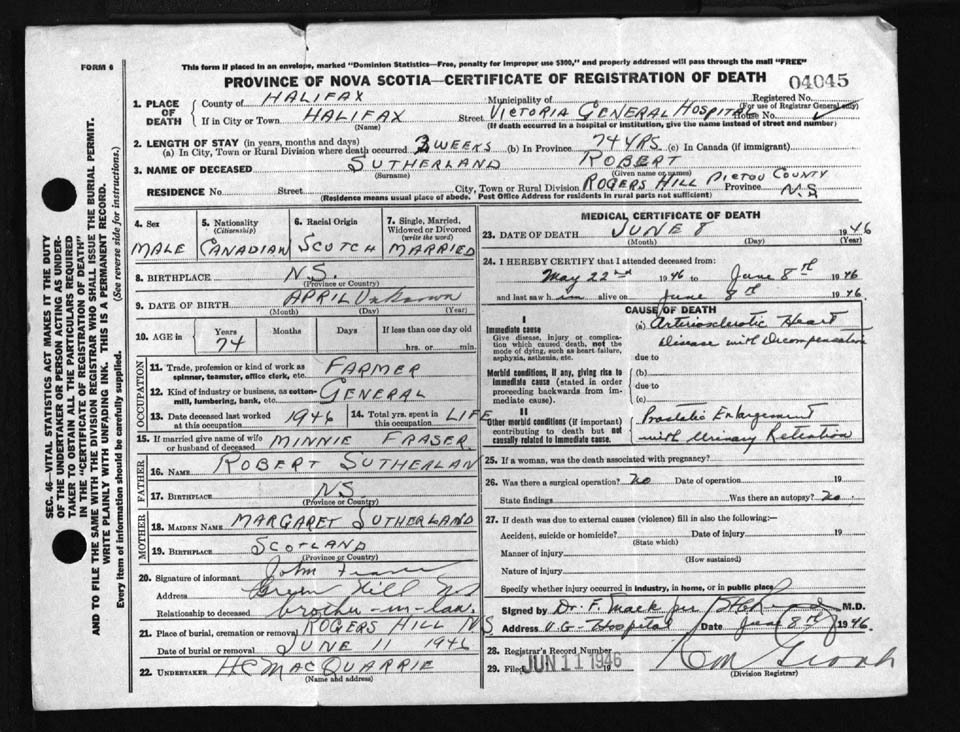 FORM 6
This form if placed in an envelope, marked "Dominion Statistics—Free, penalty for improper use $300," and properly addressed will pass through the mail "FREE"
PROVINCE OF NOVA SCOTIA—CERTIFICATE OF REGISTRATION OF DEATH
04045
Registered No.
(For use of Registrar General only)
1. PLACE OF DEATH
County of HALIFAX
Municipality of
If in City or Town HALIFAX
(Name)
Street VICTORIA GENERAL HOSPITAL House No.
(If death occurred in a hospital or institution, give the name instead of street and number)
2. LENGTH OF STAY (in years, months and days)
(a) In City, Town or Rural Division where death occurred 3 WEEKS (b) In Province 74 YRS (c) In Canada (if immigrant)
3. NAME OF DECEASED SUTHERLAND ROBERT
(Surname) (Given name or names)
RESIDENCE No. Street City, Town or Rural Division ROGERS HILL PICTOU COUNTY Province N.S
(Residence means usual place of abode. Post Office Address for residents in rural parts not sufficient)
4. Sex
MALE
5. Nationality
(Citizenship)
CANADIAN
6. Racial Origin
SCOTCH
7. Single, Married, Widowed or Divorced
(write the word)
MARRIED
8. BIRTHPLACE NS.
(Province or Country)
9. DATE OF BIRTH APRIL Unknown
(Month) (Day) (Year)
10. AGE in Years Months Days If less than one day old
74 hrs. or min.
OCCUPATION
11. Trade, profession or kind of work as spinner, teamster, office clerk, etc. FARMER
12. Kind of industry or business, as cotton-mill, lumbering, bank, etc. GENERAL
13. Date deceased last worked at this occupation 1946
14. Total yrs. spent in this occupation LIFE
15. If married give name of wife or husband of deceased MINNIE FRASER
FATHER
16. NAME ROBERT SUTHERLAN
17. BIRTHPLACE NS.
(Province or Country)
MOTHER
18. MAIDEN NAME MARGARET SUTHERLAND
19. BIRTHPLACE SCOTLAND
(Province or Country)
20. Signature of informant John
Address Hill NS
Relationship to deceased brother-in-law.
21. Place of burial, cremation or removal ROGERS HILL NS
Date of burial or removal JUNE 11 1946
22. UNDERTAKER H.C MACQUARRIE
(Name and address)
MEDICAL CERTIFICATE OF DEATH
23. DATE OF DEATH JUNE 8 1946
(Month) (Day) (Year)
24. I HEREBY CERTIFY that I attended deceased from:
May 22nd 1946 to June 8th 1946
and last saw him alive on June 8th 1946.
CAUSE OF DEATH
I
Immediate cause
Give disease, injury or complication which caused death, not the mode of dying, such as heart-failure, asphyxia, asthenia, etc.
(a) Arteriosclerotic Heart
Disease with Decompensation
due to
Morbid conditions, if any, giving rise to immediate cause (stated in order proceeding backwards from immediate cause).
(b)
due to
(c)
II
Other morbid conditions (if important) contributing to death but not causally related to immediate cause.
Prostatic Enlargement
with Urinary Retention
25. If a woman, was the death associated with pregnancy?
26. Was there a surgical operation? no Date of operation 19
State findings Was there an autopsy? no.
27. If death was due to external causes (violence) fill in also the following:—
Accident, suicide or homicide? Date of injury 19
(State which)
Manner of injury
(How sustained)
Nature of injury
Specify whether injury occurred in industry, in home, or in public place
Signed by Dr. F. Mack per M.D.
Address V.G-Hospital Date June 8th 1946.
28. Registrar's Record Number
29. Filed JUN 11 1946 19
(Division Registrar)
SEC. 46—VITAL STATISTICS ACT MAKES IT THE DUTY
OF THE UNDERTAKER OR PERSON ACTING AS UNDER-
TAKER TO OBTAIN ALL THE PARTICULARS REQUIRED
IN THE "CERTIFICATE OF REGISTRATION OF DEATH"
AND TO FILE THE SAME WITH THE DIVISION REGISTRAR WHO SHALL ISSUE THE BURIAL PERMIT.
WRITE PLAINLY WITH UNFADING INK. THIS IS A PERMANENT RECORD.
Every item of information should be carefully supplied. (See reverse side for instructions.)